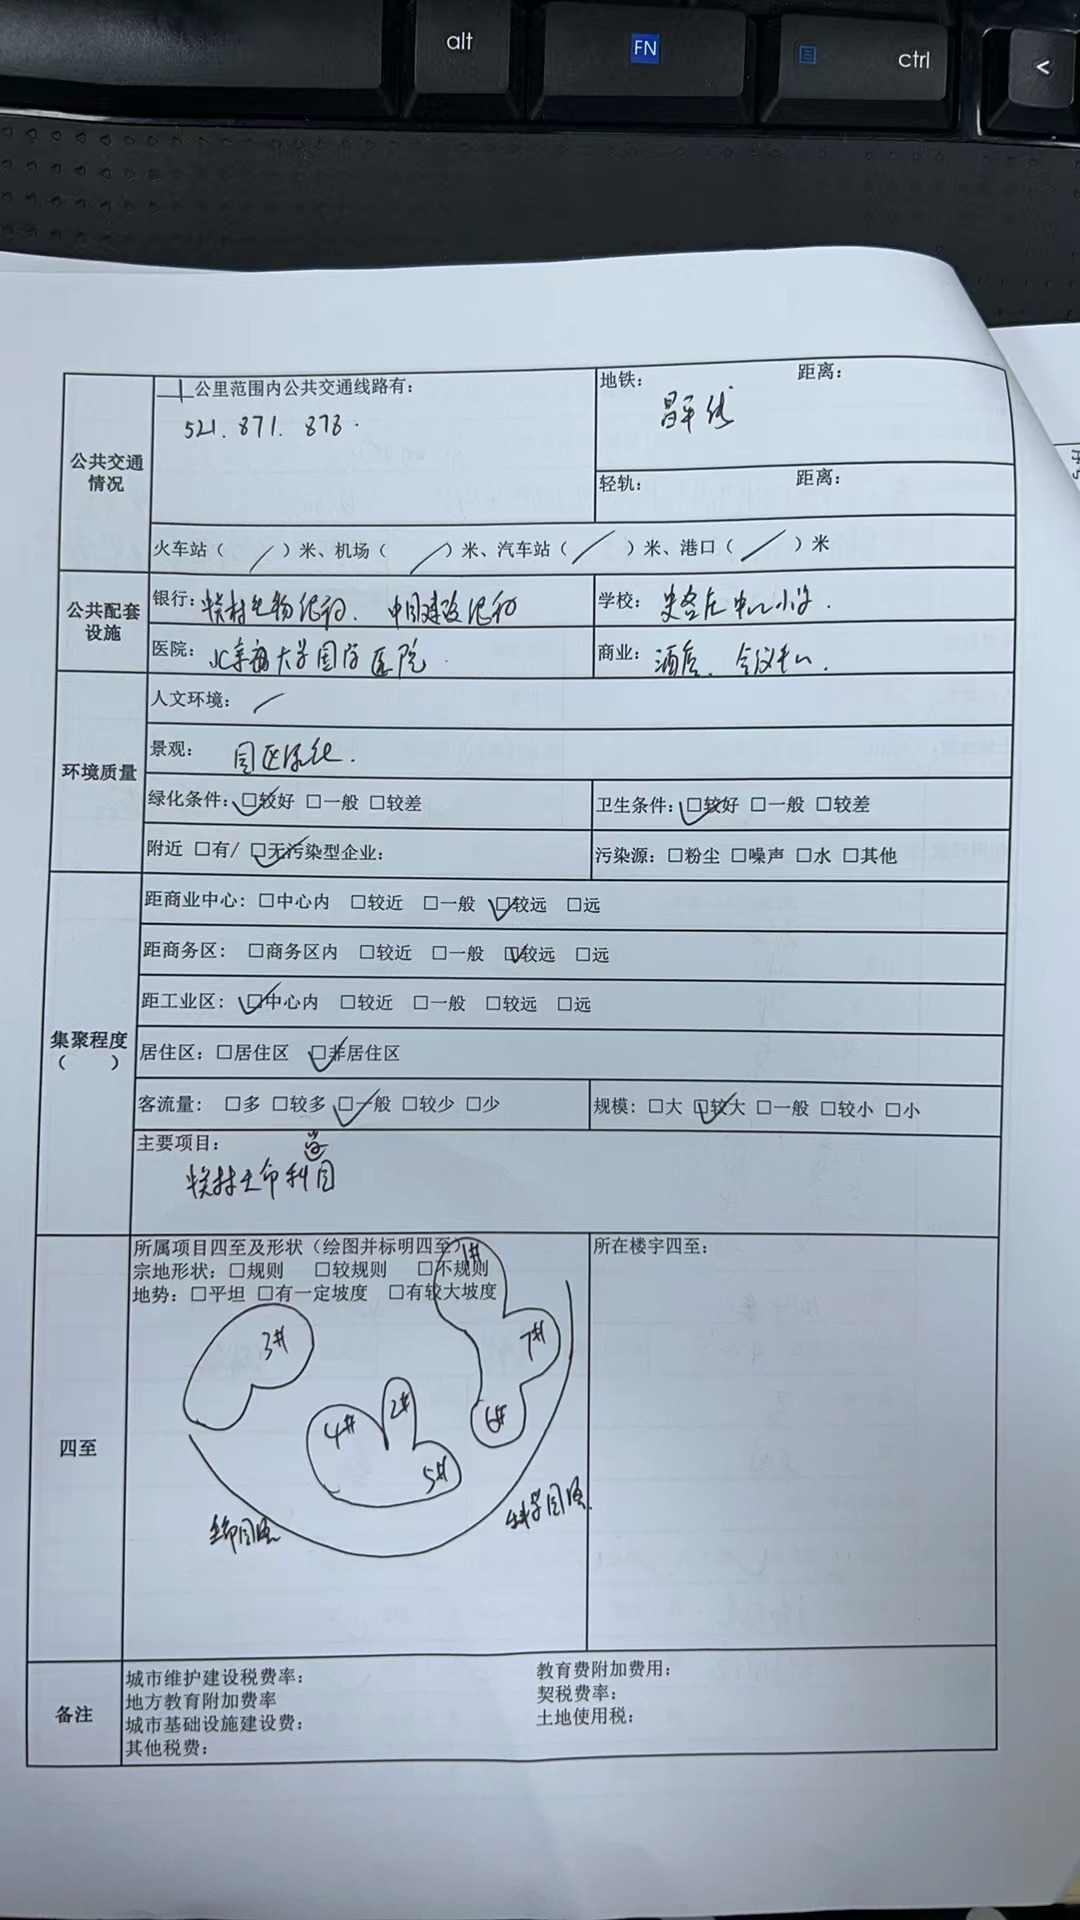 alt
FN
ctrl
<
公共交通情况
公里范围内公共交通线路有：
521. 871. 878.
地铁： 距离：
昌平线
轻轨： 距离：
火车站（ ／ ）米、机场（ ／ ）米、汽车站（ ／ ）米、港口（ ／ ）米
公共配套设施
银行： 中国建设银行
学校： 中心小学.
医院： 大学国际医院
商业：酒店、会议中心.
环境质量
人文环境：／
景观：园区绿化.
绿化条件：☑较好 □一般 □较差
卫生条件：☑较好 □一般 □较差
附近 □有/ ☑无污染型企业：
污染源：□粉尘 □噪声 □水 □其他
集聚程度
（ ）
距商业中心：□中心内 □较近 □一般 ☑较远 □远
距商务区：□商务区内 □较近 □一般 ☑较远 □远
距工业区：☑中心内 □较近 □一般 □较远 □远
居住区：□居住区 ☑非居住区
客流量：□多 □较多 ☑一般 □较少 □少
规模：□大 ☑较大 □一般 □较小 □小
主要项目：
生命科学园
四至
所属项目四至及形状（绘图并标明四至）
宗地形状：□规则 □较规则 □不规则
地势：□平坦 □有一定坡度 □有较大坡度
所在楼宇四至：
1#
3#
7#
2#
4#
6#
5#
科学园路
备注
城市维护建设税费率：
教育费附加费用：
地方教育附加费率
契税费率：
城市基础设施建设费：
土地使用税：
其他税费：